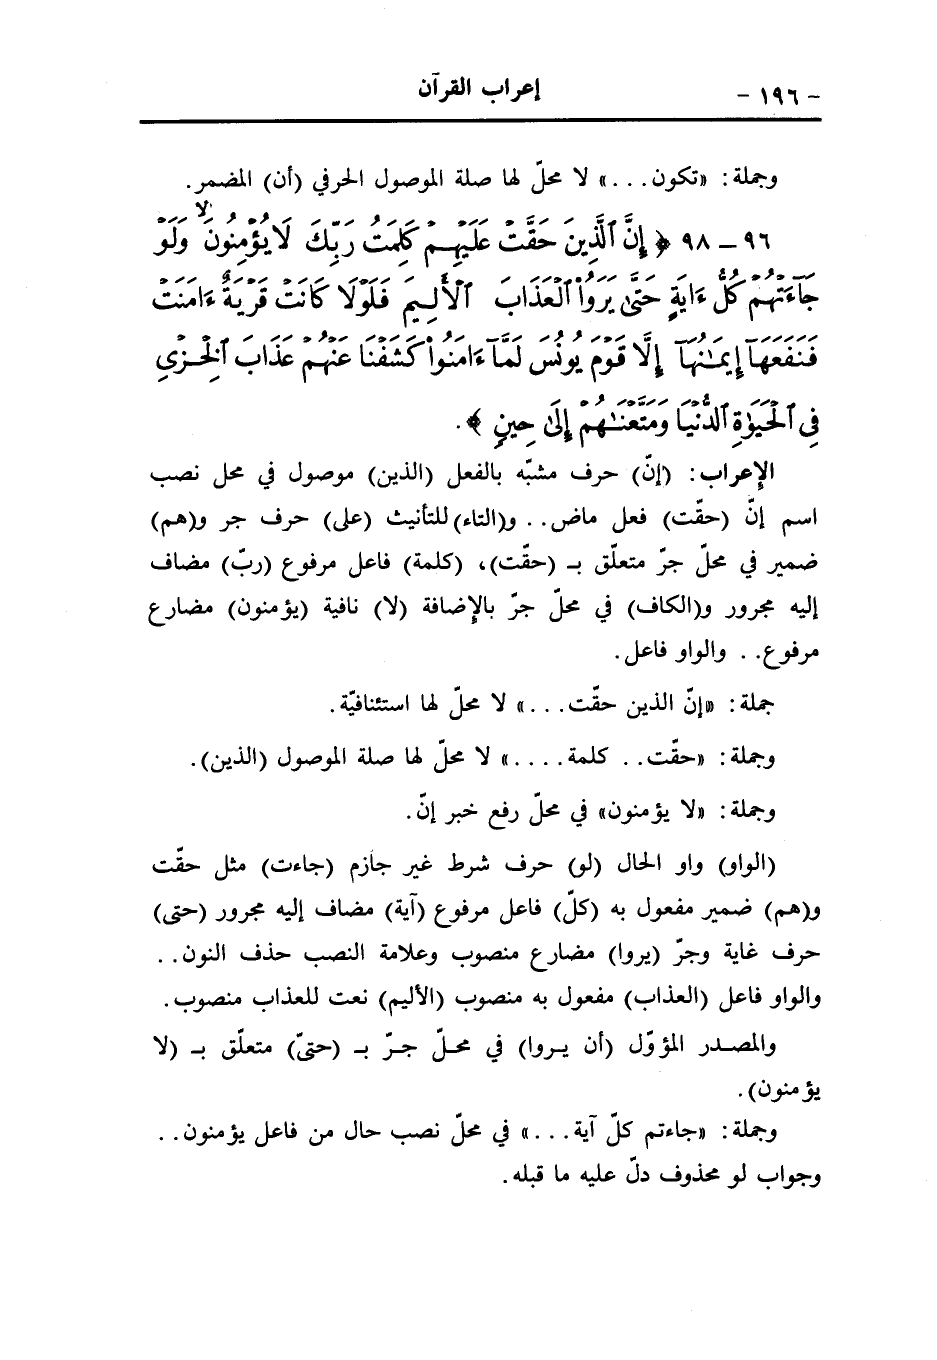 - ١٩٦ - إعراب القرآن
وجملة: «تكون...» لا محلّ لها صلة الموصول الحرفي (أن) المضمر.
٩٦ - ٩٨ ﴿ إِنَّ ٱلَّذِينَ حَقَّتْ عَلَيْهِمْ كَلِمَتُ رَبِّكَ لَا يُؤْمِنُونَ ۙ وَلَوْ
جَآءَتْهُمْ كُلُّ ءَايَةٍ حَتَّىٰ يَرَوُا۟ ٱلْعَذَابَ ٱلْأَلِيمَ فَلَوْلَا كَانَتْ قَرْيَةٌ ءَامَنَتْ
فَنَفَعَهَآ إِيمَـٰنُهَآ إِلَّا قَوْمَ يُونُسَ لَمَّآ ءَامَنُوا۟ كَشَفْنَا عَنْهُمْ عَذَابَ ٱلْخِزْىِ
فِى ٱلْحَيَوٰةِ ٱلدُّنْيَا وَمَتَّعْنَـٰهُمْ إِلَىٰ حِينٍ ﴾.
الإعراب: (إنّ) حرف مشبّه بالفعل (الذين) موصول في محل نصب
اسم إنّ (حقّت) فعل ماض.. و(التاء) للتأنيث (على) حرف جر و(هم)
ضمير في محلّ جرّ متعلّق بـ (حقّت)، (كلمة) فاعل مرفوع (ربّ) مضاف
إليه مجرور و(الكاف) في محلّ جرّ بالإضافة (لا) نافية (يؤمنون) مضارع
مرفوع.. والواو فاعل.
جملة: «إنّ الذين حقّت...» لا محلّ لها استئنافيّة.
وجملة: «حقّت.. كلمة....» لا محلّ لها صلة الموصول (الذين).
وجملة: «لا يؤمنون» في محلّ رفع خبر إنّ.
(الواو) واو الحال (لو) حرف شرط غير جازم (جاءت) مثل حقّت
و(هم) ضمير مفعول به (كلّ) فاعل مرفوع (آية) مضاف إليه مجرور (حتى)
حرف غاية وجرّ (يروا) مضارع منصوب وعلامة النصب حذف النون..
والواو فاعل (العذاب) مفعول به منصوب (الأليم) نعت للعذاب منصوب.
والمصدر المؤوّل (أن يروا) في محلّ جرّ بـ (حتىّ) متعلّق بـ (لا
يؤمنون).
وجملة: «جاءتم كلّ آية...» في محلّ نصب حال من فاعل يؤمنون..
وجواب لو محذوف دلّ عليه ما قبله.